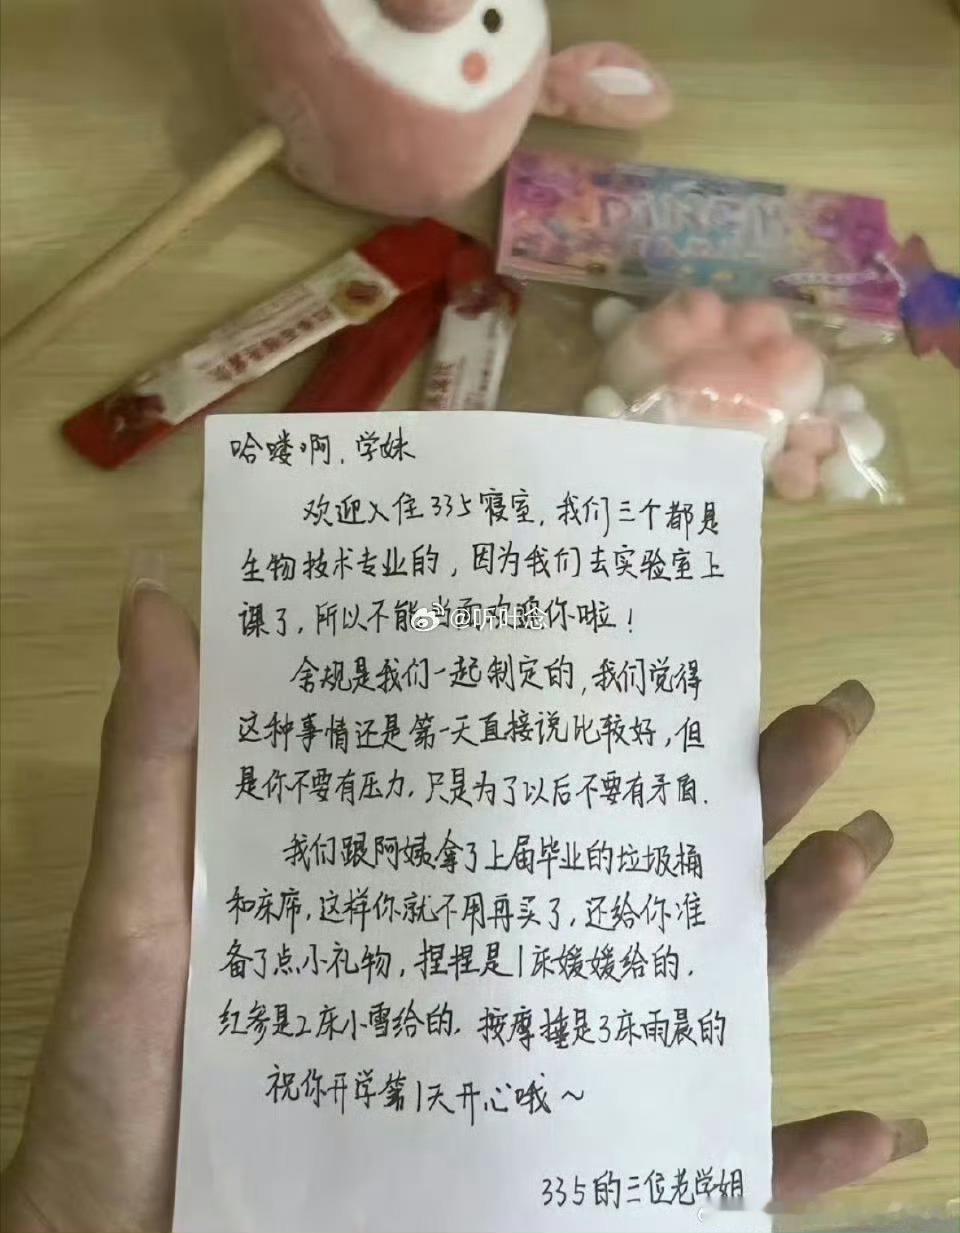 哈喽啊，学妹
欢迎入住335寝室，我们三个都是
生物技术专业的，因为我们去实验室上
课了，所以不能当面欢迎你啦！
@听叶念
舍规是我们一起制定的，我们觉得
这种事情还是第一天直接说比较好，但
是你不要有压力，只是为了以后不要有矛盾.
我们跟阿姨拿了上届毕业的垃圾桶
和床席，这样你就不用再买了，还给你准
备了点小礼物，捏捏是1床媛媛给的，
红参是2床小雪给的，按摩捶是3床雨晨的
祝你开学第1天开心哦～
335的三位老学姐